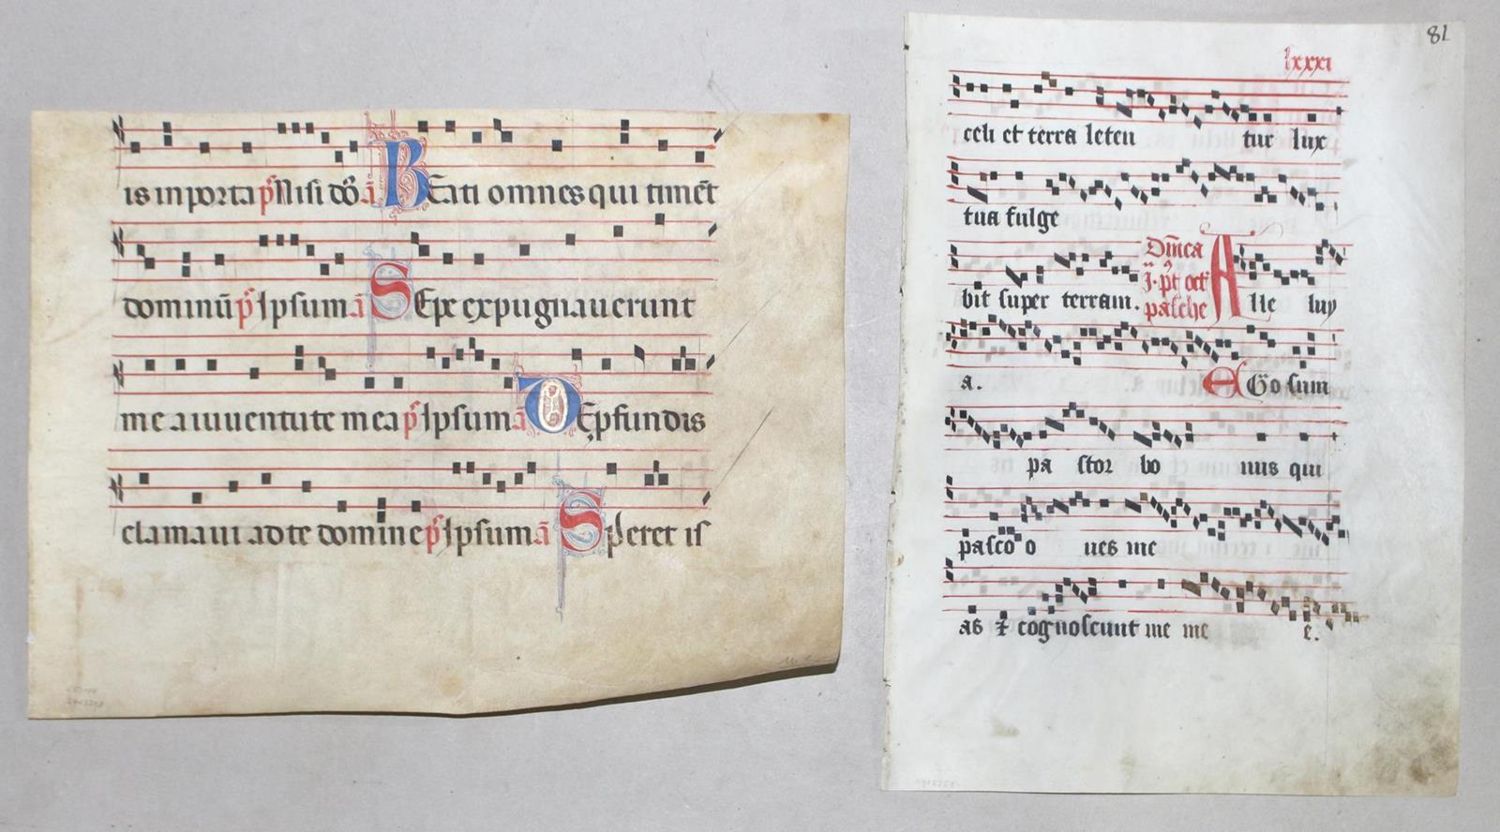 is in porta p̄s Nisi dō ā BEati omnes qui timēt
dominū p̄s Ipsum ā SEpe expugnauerunt
me a iuuentute mea p̄s Ipsum ā DE pfundis
clamaui ad te domine p̄s Ipsum ā Speret isr̄
81
lxxxi
celi et terra leten tur lux
tua fulge
bit super terram. Dn̄ica
j. pt oct̄
pasche Alle luy
a. EGo sum
pa stor bo nus qui
pasco o ues me
as ⁊ cognoscunt me me e.